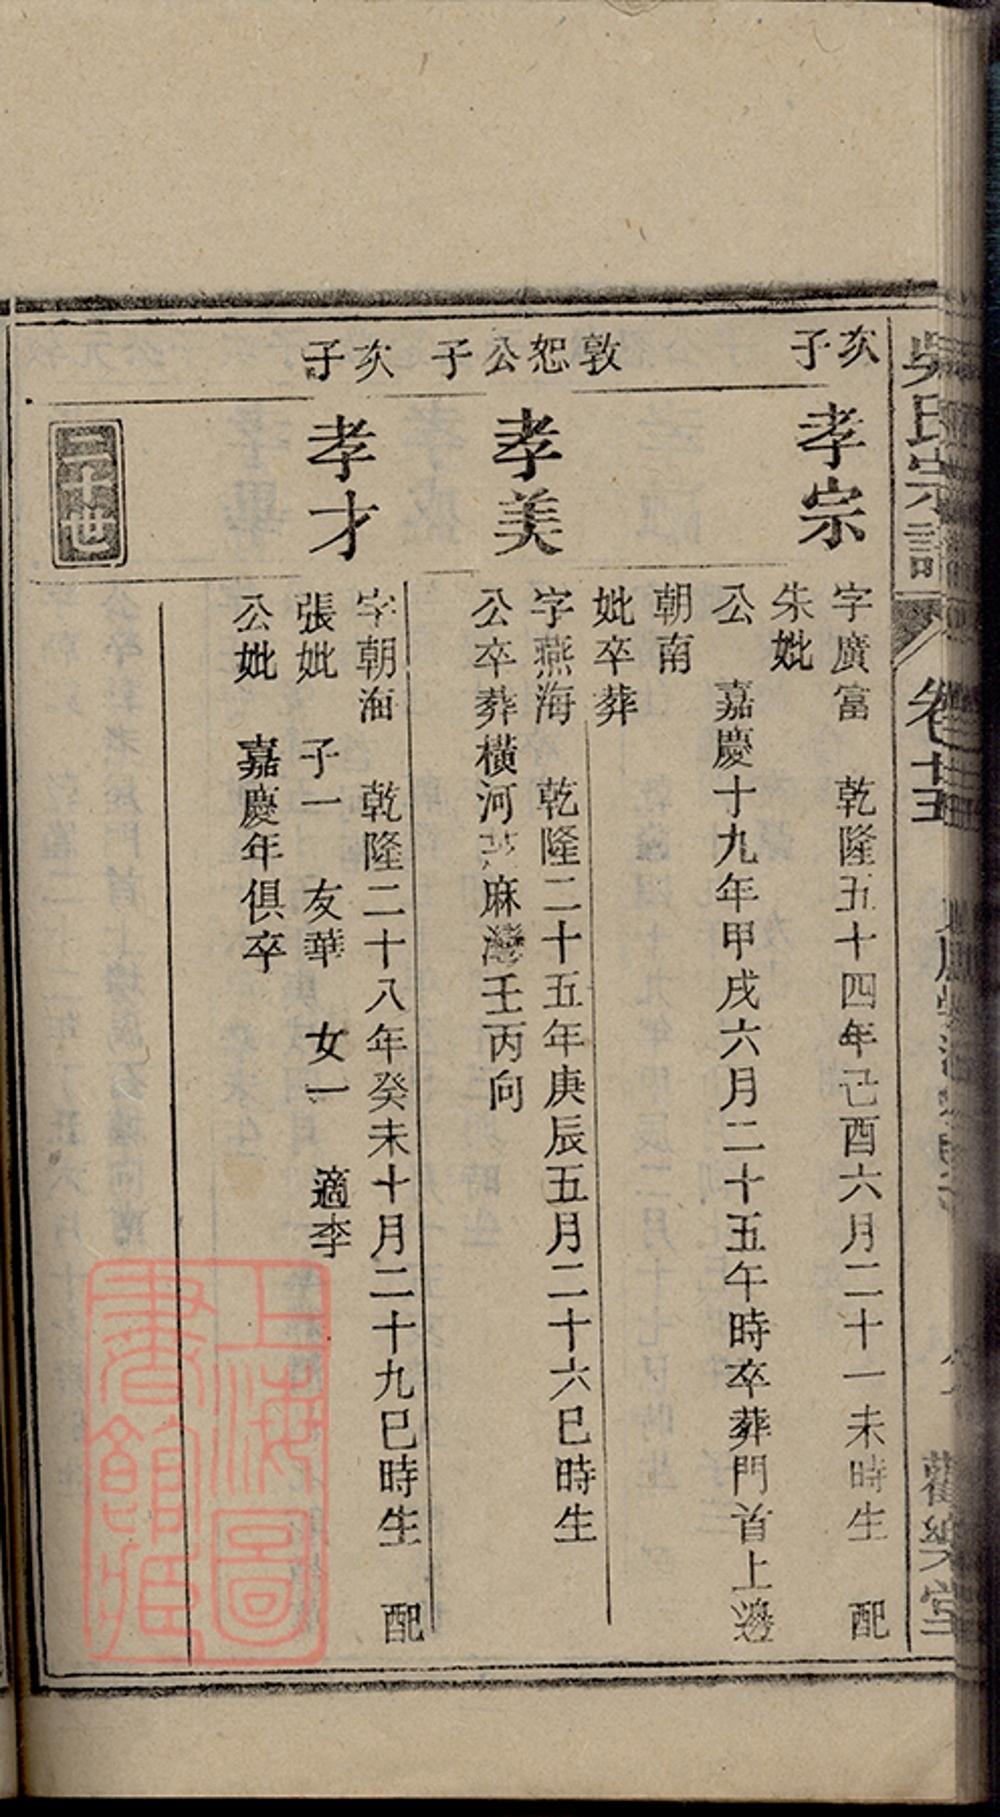 吳氏宗譜
卷
觀樂堂
次子
孝宗
字廣富 乾隆五十四年己酉六月二十一未時生 配
朱妣
公 嘉慶十九年甲戌六月二十五午時卒葬門首上邊
朝南
妣卒葬
敦恕公子
孝美
字燕海 乾隆二十五年庚辰五月二十六巳時生
公卒葬橫河 麻灣壬丙向
次子
孝才
字朝海 乾隆二十八年癸未十月二十九巳時生 配
張妣 子一 友華 女一 適李
公妣 嘉慶年俱卒
二十世
上海圖
書館藏